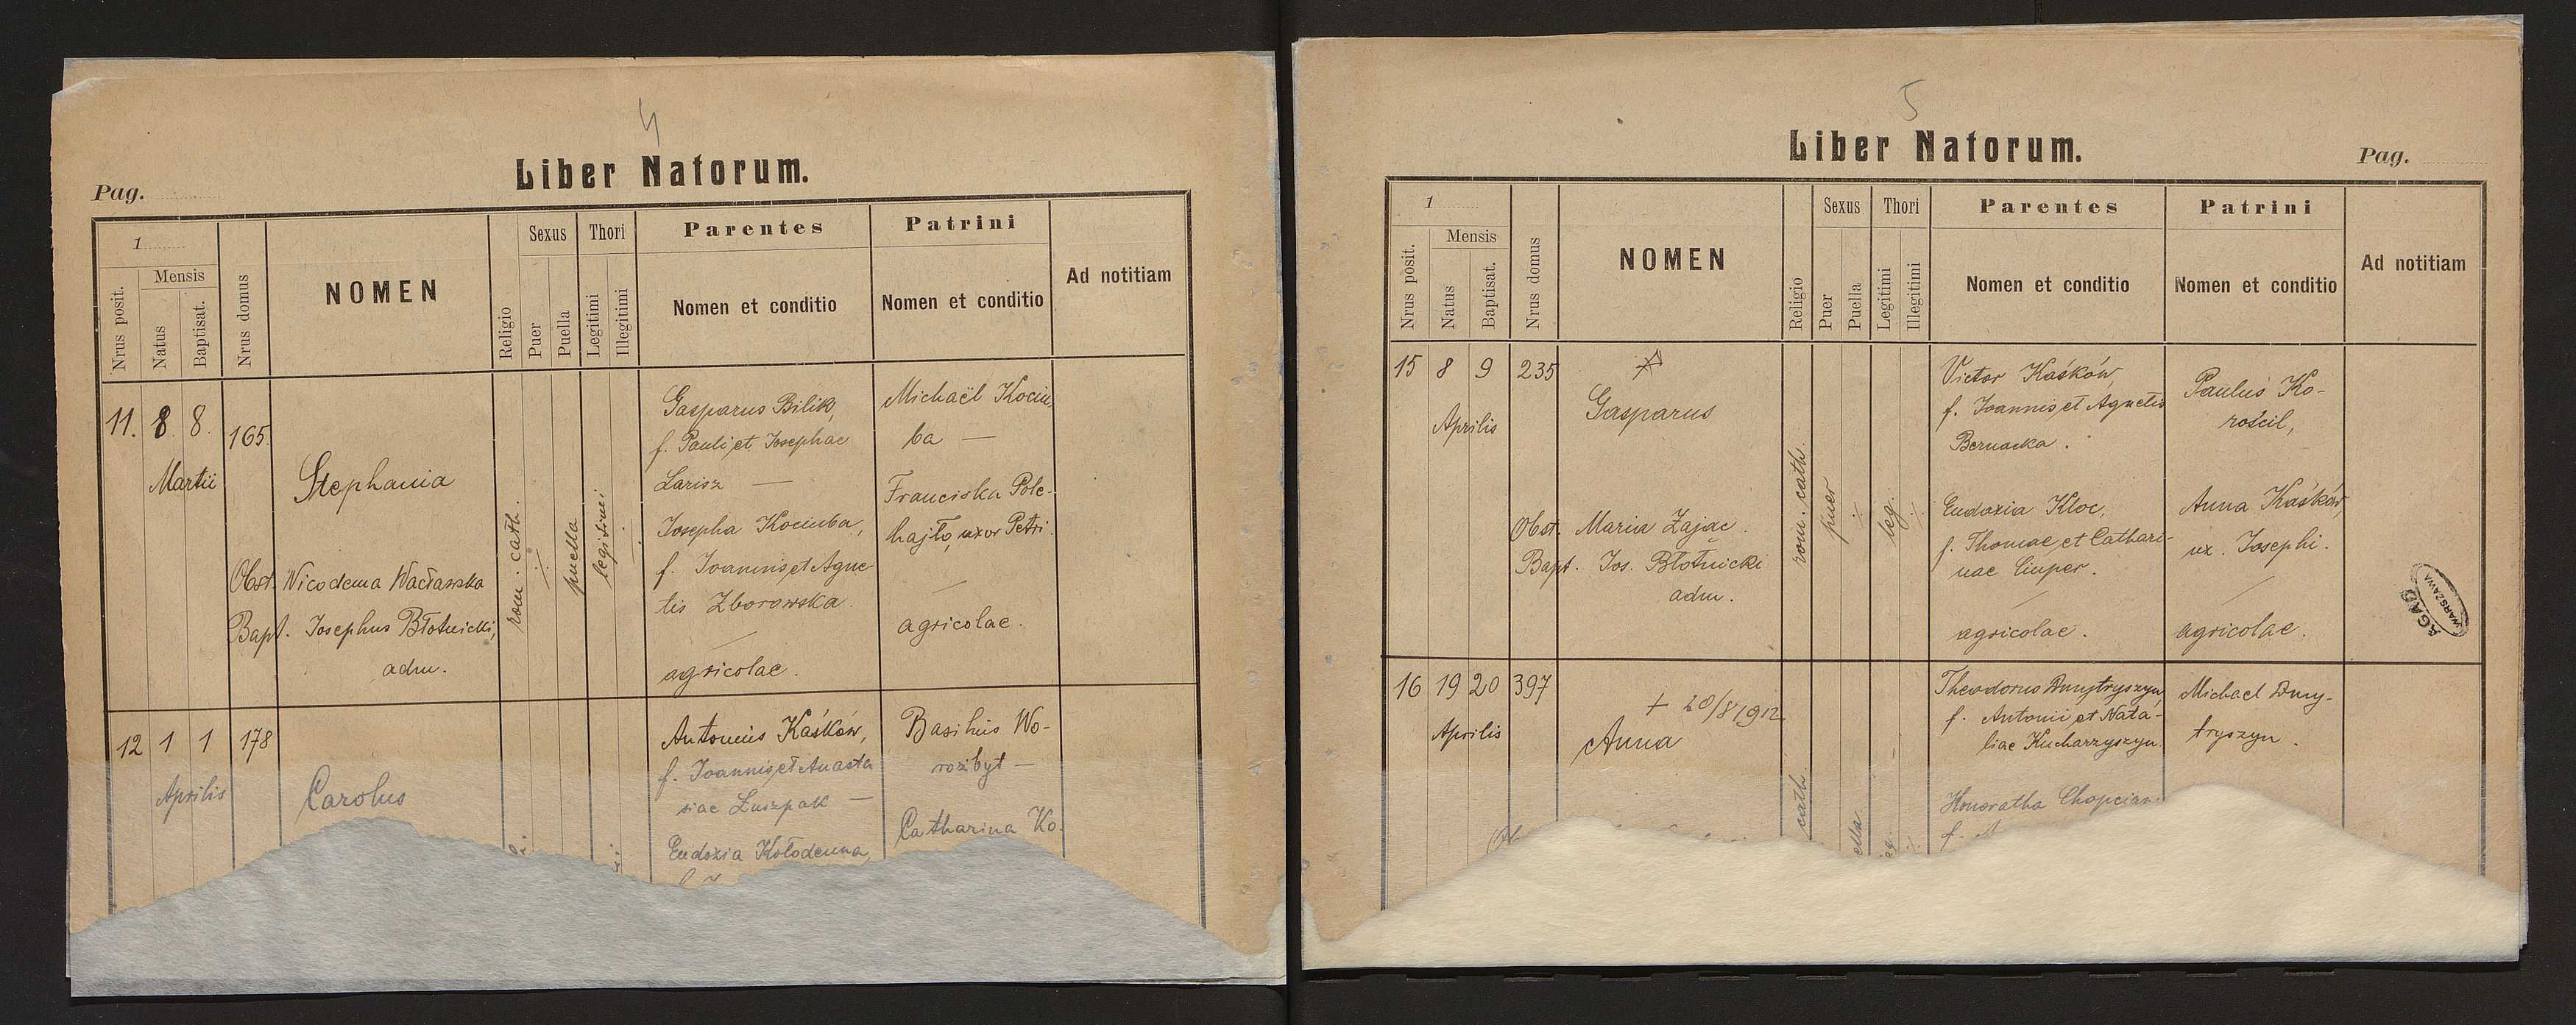 4
Liber Natorum.
Pag.
1
Nrus posit.
Mensis
Natus
Baptisat.
Nrus domus
NOMEN
Religio
Sexus
Puer
Puella
Thori
Legitimi
Illegitimi
Parentes
Nomen et conditio
Patrini
Nomen et conditio
Ad notitiam
11. 8. 8. 165.
Martii
Stephania
Obst. Nicodema Wacławska
Bapt. Josephus Błotnicki,
adm.
rom. cath.
puella
legitimi
Gasparus Bilik,
f. Pauli et Josephae
Larisz —
Josepha Kociuba,
f. Joannis et Agne-
tis Zborowska.
agricolae.
Michaël Kociu
ba —
Franciska Pole-
hajło, uxor Petri
agricolae.
12 1 1 178
Aprilis
Carolus
Antonius Kaśków,
f. Joannis et Anasta
siae Łuszpak —
Eudoxia Kołodenna
Basilius Wo-
rożbyt —
Catharina Ko
5
Liber Natorum.
Pag.
1
Nrus posit.
Mensis
Natus
Baptisat.
Nrus domus
NOMEN
Religio
Sexus
Puer
Puella
Thori
Legitimi
Illegitimi
Parentes
Nomen et conditio
Patrini
Nomen et conditio
Ad notitiam
15 8 9 235
Aprilis
Gasparus
Obst. Maria Zając.
Bapt. Jos. Błotnicki
adm.
rom. cath.
puer
leg.
Victor Kaśków,
f. Joannis et Agnetis
Bernacka.
Eudoxia Kloc,
f. Thomae et Cathari-
nae Ciuper.
agricolae.
Paulus Ko-
rościl,
Anna Kaśków,
ux. Josephi.
agricolae.
AGAD
WARSZAWA
16 19 20 397
Aprilis
+ 20/8 1912
Anna
cath.
ella
Theodorus Dmytryszyn,
f. Antonii et Nata-
liae Kucharzyszyn.
Honoratha Chopcian
f.
Michael Dmy-
tryszyn.